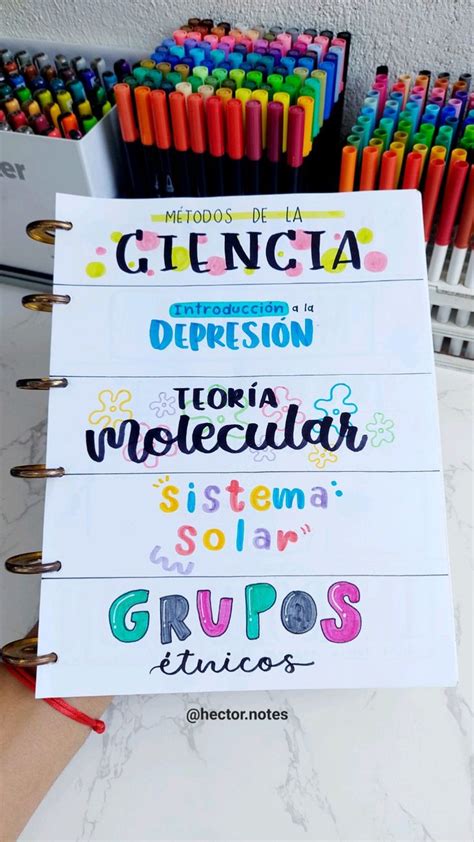 MÉTODOS DE LA
CIENCIA
Introducción a la
DEPRESIÓN
TEORÍA
Molecular
sistema
solar
GRUPOS
étnicos
@hector.notes